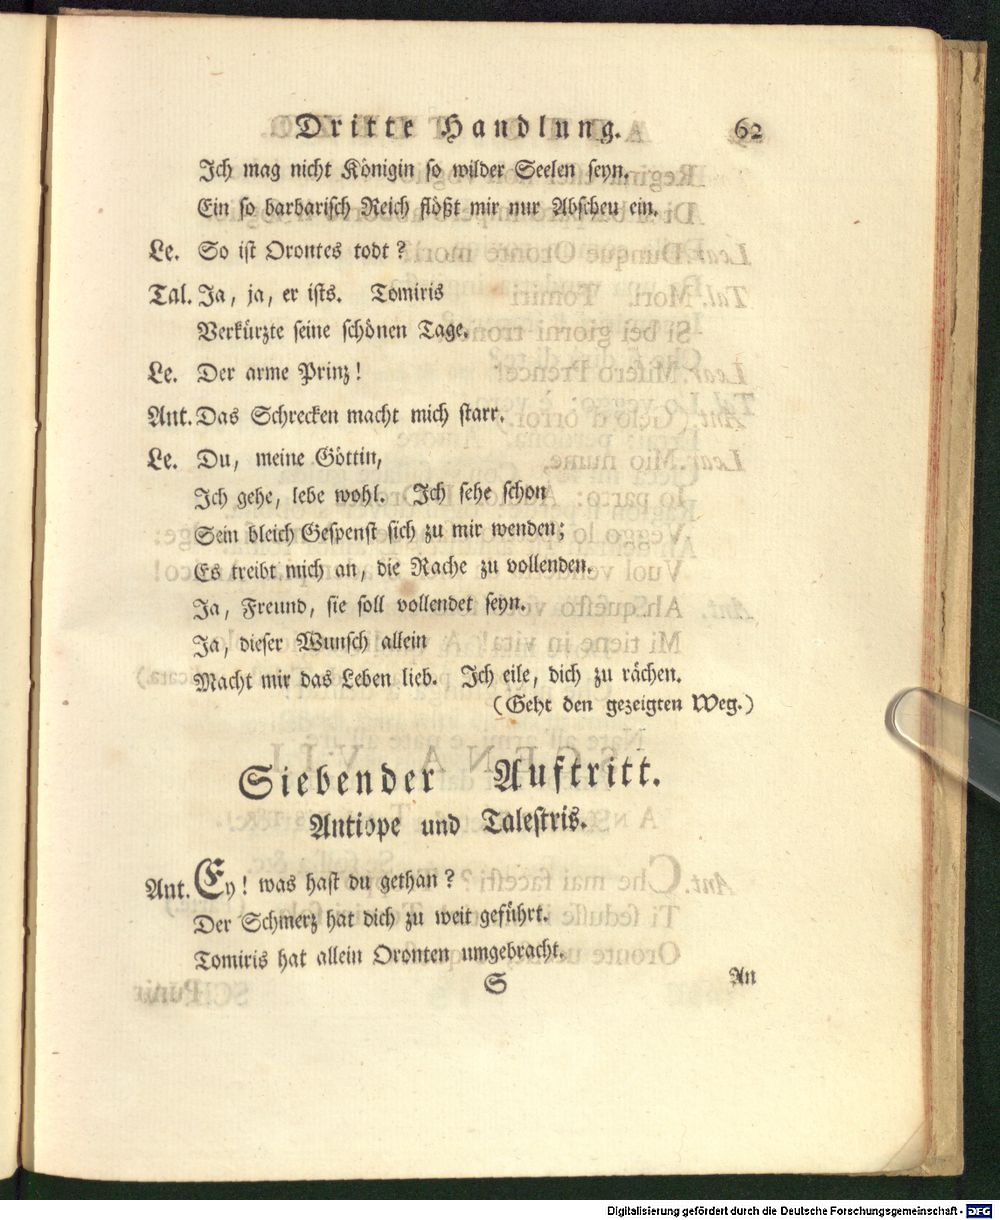 Dritte Handlung. 62
Ich mag nicht Königin so wilder Seelen seyn.
Ein so barbarisch Reich flößt mir nur Abscheu ein.
Le. So ist Orontes todt?
Tal. Ja, ja, er ists. Tomiris
Verkürzte seine schönen Tage.
Le. Der arme Prinz!
Ant. Das Schrecken macht mich starr.
Le. Du, meine Göttin,
Ich gehe, lebe wohl. Ich sehe schon
Sein bleich Gespenst sich zu mir wenden;
Es treibt mich an, die Rache zu vollenden.
Ja, Freund, sie soll vollendet seyn.
Ja, dieser Wunsch allein
Macht mir das Leben lieb. Ich eile, dich zu rächen.
(Geht den gezeigten Weg.)
Siebender Auftritt.
Antiope und Talestris.
Ant. Ey! was hast du gethan?
Der Schmerz hat dich zu weit geführt.
Tomiris hat allein Oronten umgebracht.
S An
Digitalisierung gefördert durch die Deutsche Forschungsgemeinschaft - DFG